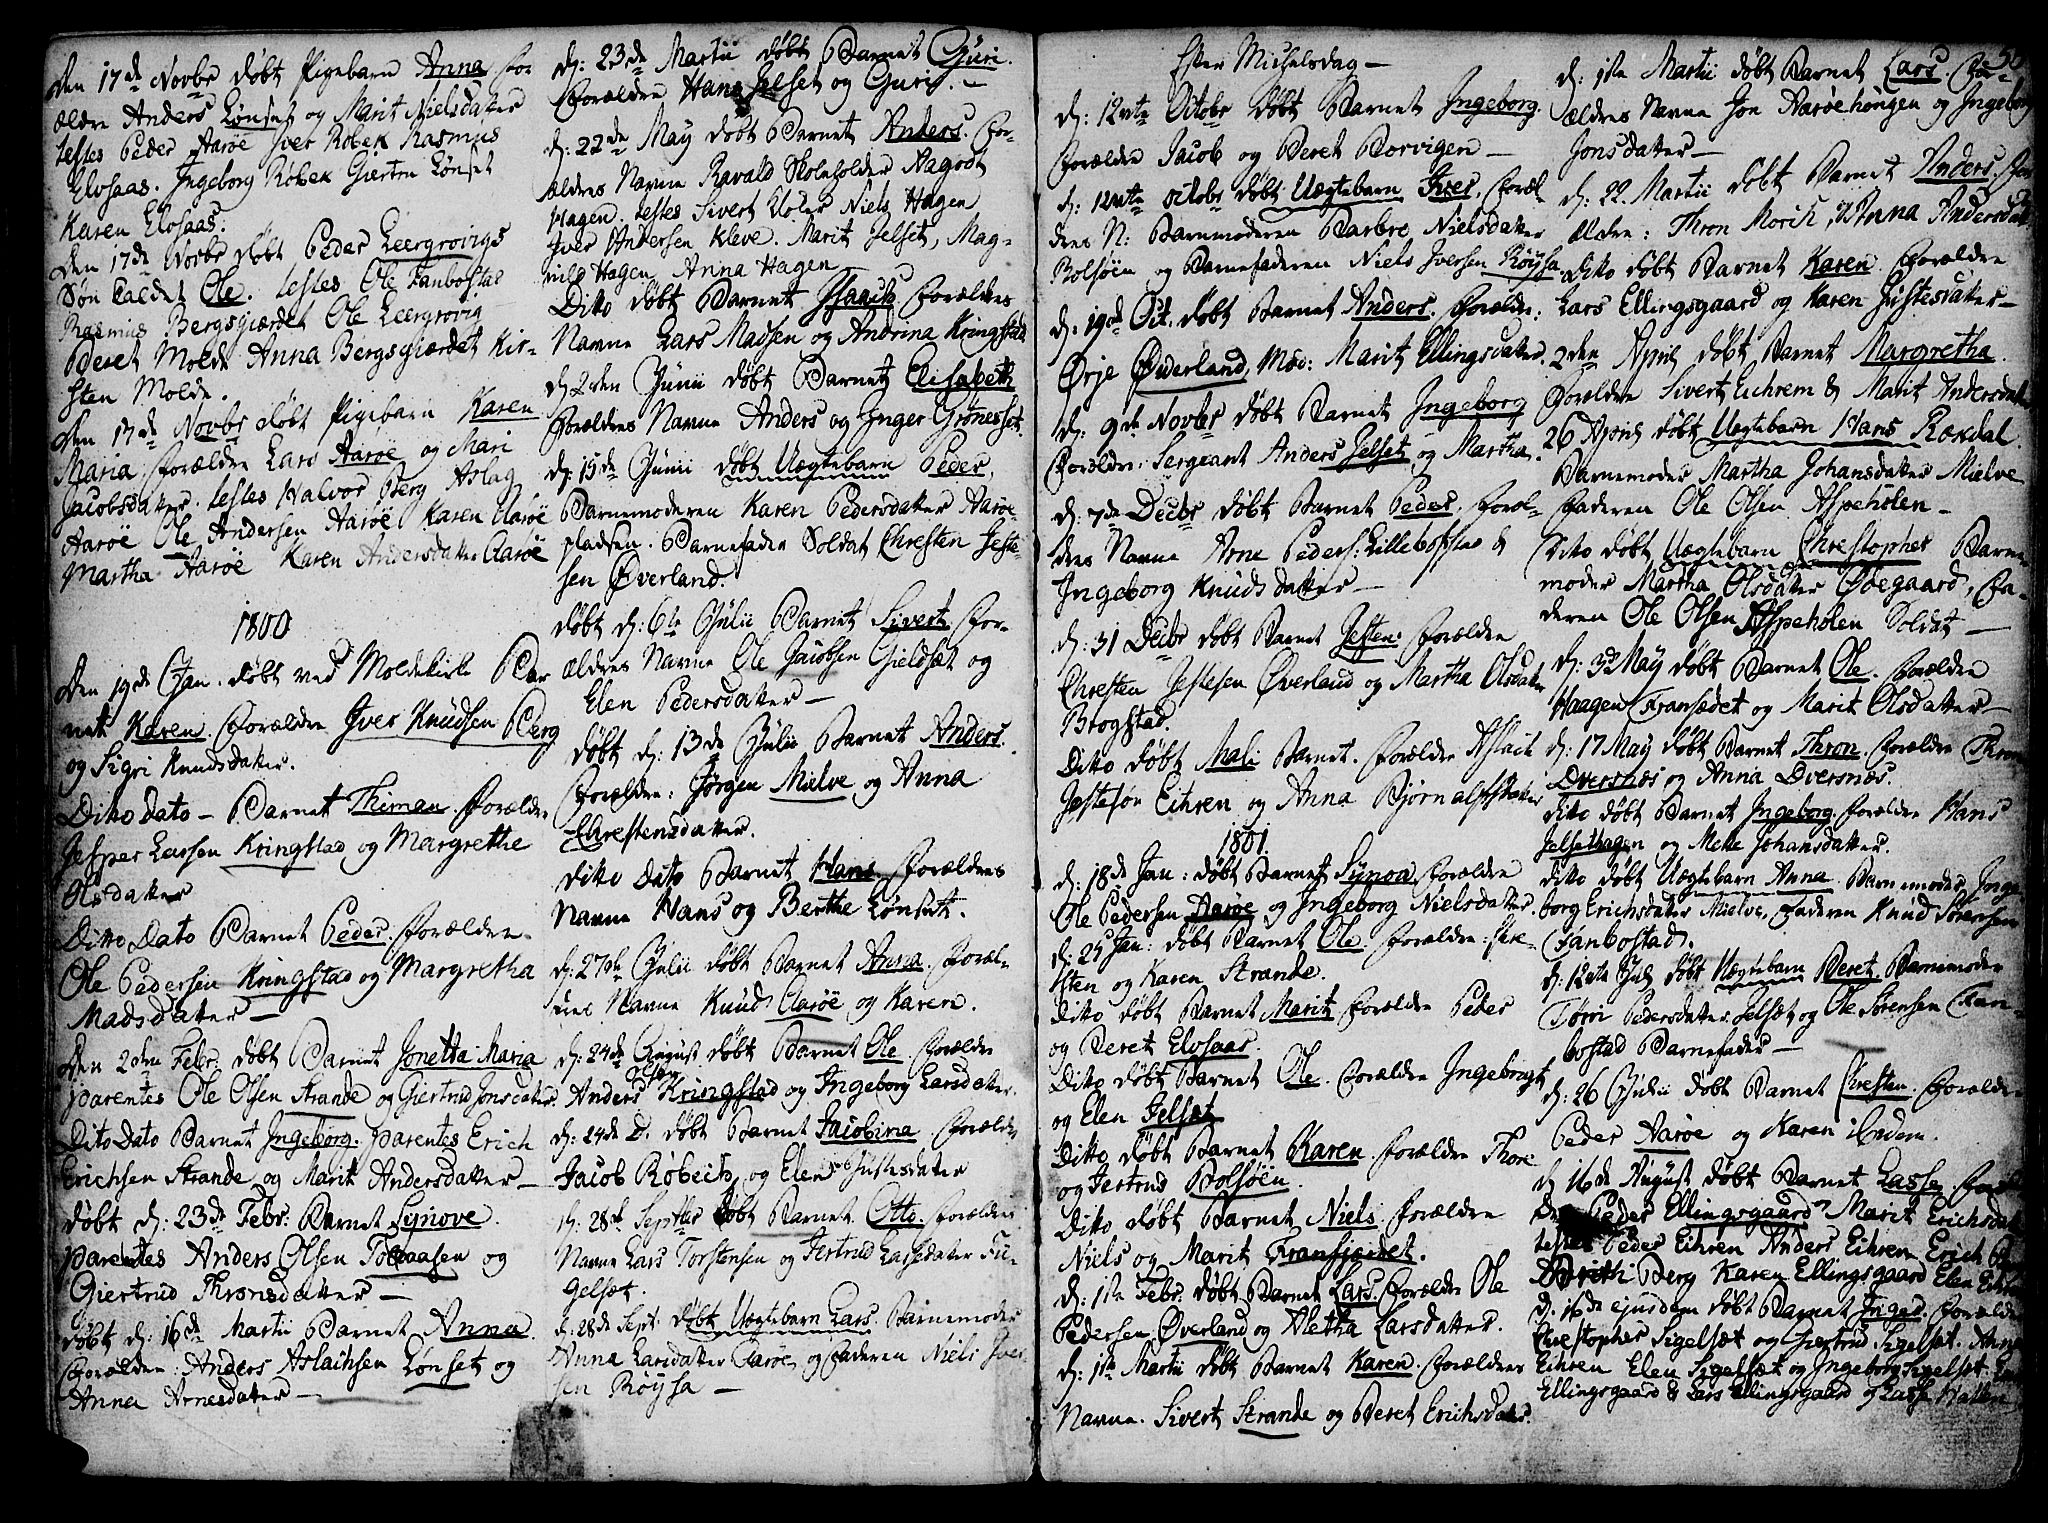 Den 17de Novbr døbt Pigebarn Anna. For
ældre Anders Lønset og Marit Nielsdatter
testes Peder Aarøe Iver Røbek Rasmus
Elvsaas. Ingeborg Røbek Giertru Lønset
Karen Elvsaas.
Den 17de Novbr døbt Peder Leergrovigs
Søn kaldet Ole. testes Ole Fanbostad
Rasmus Bergsgiærdet Ole Leergrovig
Beret Molde Anna Bergsgiærdet Kir-
sten Molde.
Den 17de Novbr døbt Pigebarn Karen
Maria forældre Lars Aarøe og Mari
Jacobsdatter. testes Halvor Berg Aslag
Aarøe Ole Andersen Aarøe Karen Aarøe
Martha Aarøe Karen Andersdatter Aarøe
1800
Den 19de Jan. døbt ved Moldekirke Bar
net Karen. Forældre Iver Knudsen Berg
og Sigri Knudsdatter.
Ditto dato – Barnet Thoman. Forældre
Jesper Larsen Kringstad og Margrethe
Olsdatter
Ditto Dato Barnet Peder. Forældre
Ole Pedersen Kringstad og Margretha
Madsdatter –
Den 2den Febr. døbt Barnet Jonetta Maria
parentes Ole Olsen Strande og Giertrud Jonsdatter.
Dito Dato Barnet Ingeborg. parentes Erich
Erichsen Strande og Marit Andersdatter –
døbt d: 23de Febr: Barnet Synove.
parentes Anders Olsen Tolaasen og
Giertrud Thronsdatter –
døbt d: 16de Martii Barnet Anna.
Forældre: Anders Aslachsen Lønset og
Anna Arnesdatter –
d: 23de Martii døbt Barnet Guri.
Forældre Hans Jelset og Guri. –
d: 22de May døbt Barnet Anders. For-
ældres Navne Ravald Skoleholder Aagodt
Hagen. testes Sivert Niels Hagen
Iver Andersen Kleve. Marit Jelset, Mag-
nild Hagen Anna Hagen –
Ditto døbt Barnet Isaach Forældres
Navne Lars Madsen og Andrina Kringstad
d: 2den Junii døbt Barnet Elisabeth
Forældres Navne Anders og Inger Grønesset.
d: 15de Junii døbt Uægtebarn Peder,
Barnemoderen Karen Pedersdatter Aarøe-
pladsen. Barnefader Soldat Chresten Jeste-
sen Øverland.
døbt d: 6te Julii Barnet Sivert For-
ældres Navne Ole Jacobsen Gieldsæt og
Elen Pedersdatter –
døbt d: 13de Julii Barnet Anders.
Forældre: Jørgen Mielve og Anna
Chrestensdatter.
ditto Dato Barnet Hans Forældres
Navne Hans og Berthe Lønset.
d: 27de Julii døbt Barnet Anna. Foræl-
dres Navne Knud Aarøe og Karen.
d: 24de August døbt Barnet Ole. Forældre
Anders Olsen Kringstad og Ingeborg Larsdatter.
d: 24de D. døbt Barnet Jacobina. Forældre
Jacob Røbech og Elen Justesdatter
d: 28de Septbr døbt Barnet Otto. Forældres
Navne Lars Torstensen og Jertrud Larsdatter Fu-
gelsæt.
d: 28de Sept: døbt Uægtebarn Lars. Barnemoder
Anna Larsdatter Aarøe og Faderen Niels Iver
sen Røysa –
Efter Michelsdag –
d: 12vte Octobr døbt Barnet Ingeborg.
Forældre Jacob og Beret Borvigen –
d: 12vte octobr døbt Uægtebarn Iver. Foræl
dres N: Barnmoderen Barbre Nielsdatter
Bolsøen og Barnefaderen Niels Iversen Røysa.
d: 19de Oct. døbt Barnet Anders. Forældre:
Ørje Øverland, Mod: Marit Ellingsdatter.
d: 9de Novbr døbt Barnet Ingeborg
Forældre: Sergeant Anders Jelset og Martha.
d: 7de Decbr døbt Barnet Peder. Foræl-
dres Navne Arne Peders: Lillebostad &
Ingeborg Knudsdatter –
d: 31 Decbr døbt Barnet Jesten. Forældre
Chresten Jestesen Øverland og Martha Olsdatter
Brogstad.
Ditto døbt Mali Barnet. Forældre Aslach
Jestesøn Eihren og Anna Bjørnalfsdatter
1801.
d: 18de Jan: døbt Barnet Synoa Forældre
Ole Pedersen Aarøe og Ingeborg Nielsdatter.
d: 25 Jan: døbt Barnet Ole. Forældre: Chre-
sten og Karen Strande.
Ditto døbt Barnet Marit Forældre Peder
og Beret Elvsaas.
Ditto døbt Barnet Ole. Forældre Ingebrigt
og Elen Jelsæt
Ditto døbt Barnet Karen. Forældre Thore
og Jertrud Bolsøen.
Ditto døbt Barnet Niels. Forældre
Niels og Marit Fransjærdet.
d: 1ste Febr: døbt Barnet Lars. Forældre Ole
Pedersen Øverland og Aletha Larsdatter.
d: 1ste Martii døbt Barnet Karen. Forældres
Navne. Sivert Strande og Beret Erichsdatter.
50
d: 1ste Martii døbt Barnet Lars. For-
ældres Navne Jon Aarøehougen og Ingeborg
Jonsdatter –
d: 22 Martii døbt Barnet Anders. For
ældre: Thron Morch, & Anna Andersdatter
Ditto døbt Barnet Karen. Forældre
Lars Ellingsgaard og Karen Justesdatter –
2den April døbt Barnet Margretha.
Forældre Sivert Eichrem & Marit Andersdatter
26 April døbt Uægtebarn Hans Roxdal
Barnemoder Martha Johansdatter Mielve
Faderen Ole Olsen Aspeholen –
Ditto døbt Uægtebarn Chrestopher Barne
moder Martha Olsdatter Ødegaard, Fa-
deren Ole Olsen Aspeholen Soldat –
d: 3de May døbt Barnet Ole. Forældre
Haagen Fransædet og Marit Olsdatter –
d: 17 May døbt Barnet Thron. Forældre Thron
Dversnæs og Anna Dversnæs.
Ditto døbt Barnet Ingeborg. Forældre Hans
Jelsethagen og Mette Johansdatter.
Ditto døbt Uægtebarn Anna. Barnemoder Inge
borg Erichsdatter Mielve, Faderen Knud Sørensen
Fanbostad.
d: 12vte Julii døbt Uægtebarn Beret. Barnemoder
Tørri Pedersdatter Jelsæt og Ole Sørensen Fan-
bostad Barnefader –
d: 26 Julii døbt Barnet Chresten. Forældre
Peder Aarøe og Karen ibidem.
d: 16de August døbt Barnet Lasse. Foræl
dre Peder Ellingsgaard Marit Erichsdatter
testes Peder Eihren Anders Eihren Erich Berg
Berithe Berg Karen Ellingsgaard Elen Eihren
d: 16de ejusdem døbt Barnet Inger. Forældre
Chrestopher Sigelsæt og Giertrud Sigelset. Anne
Eihren Elen Sigelsæt og Ingeborg Sigelset.
Ellingsgaard & Lars Ellingsgaard og Lasse